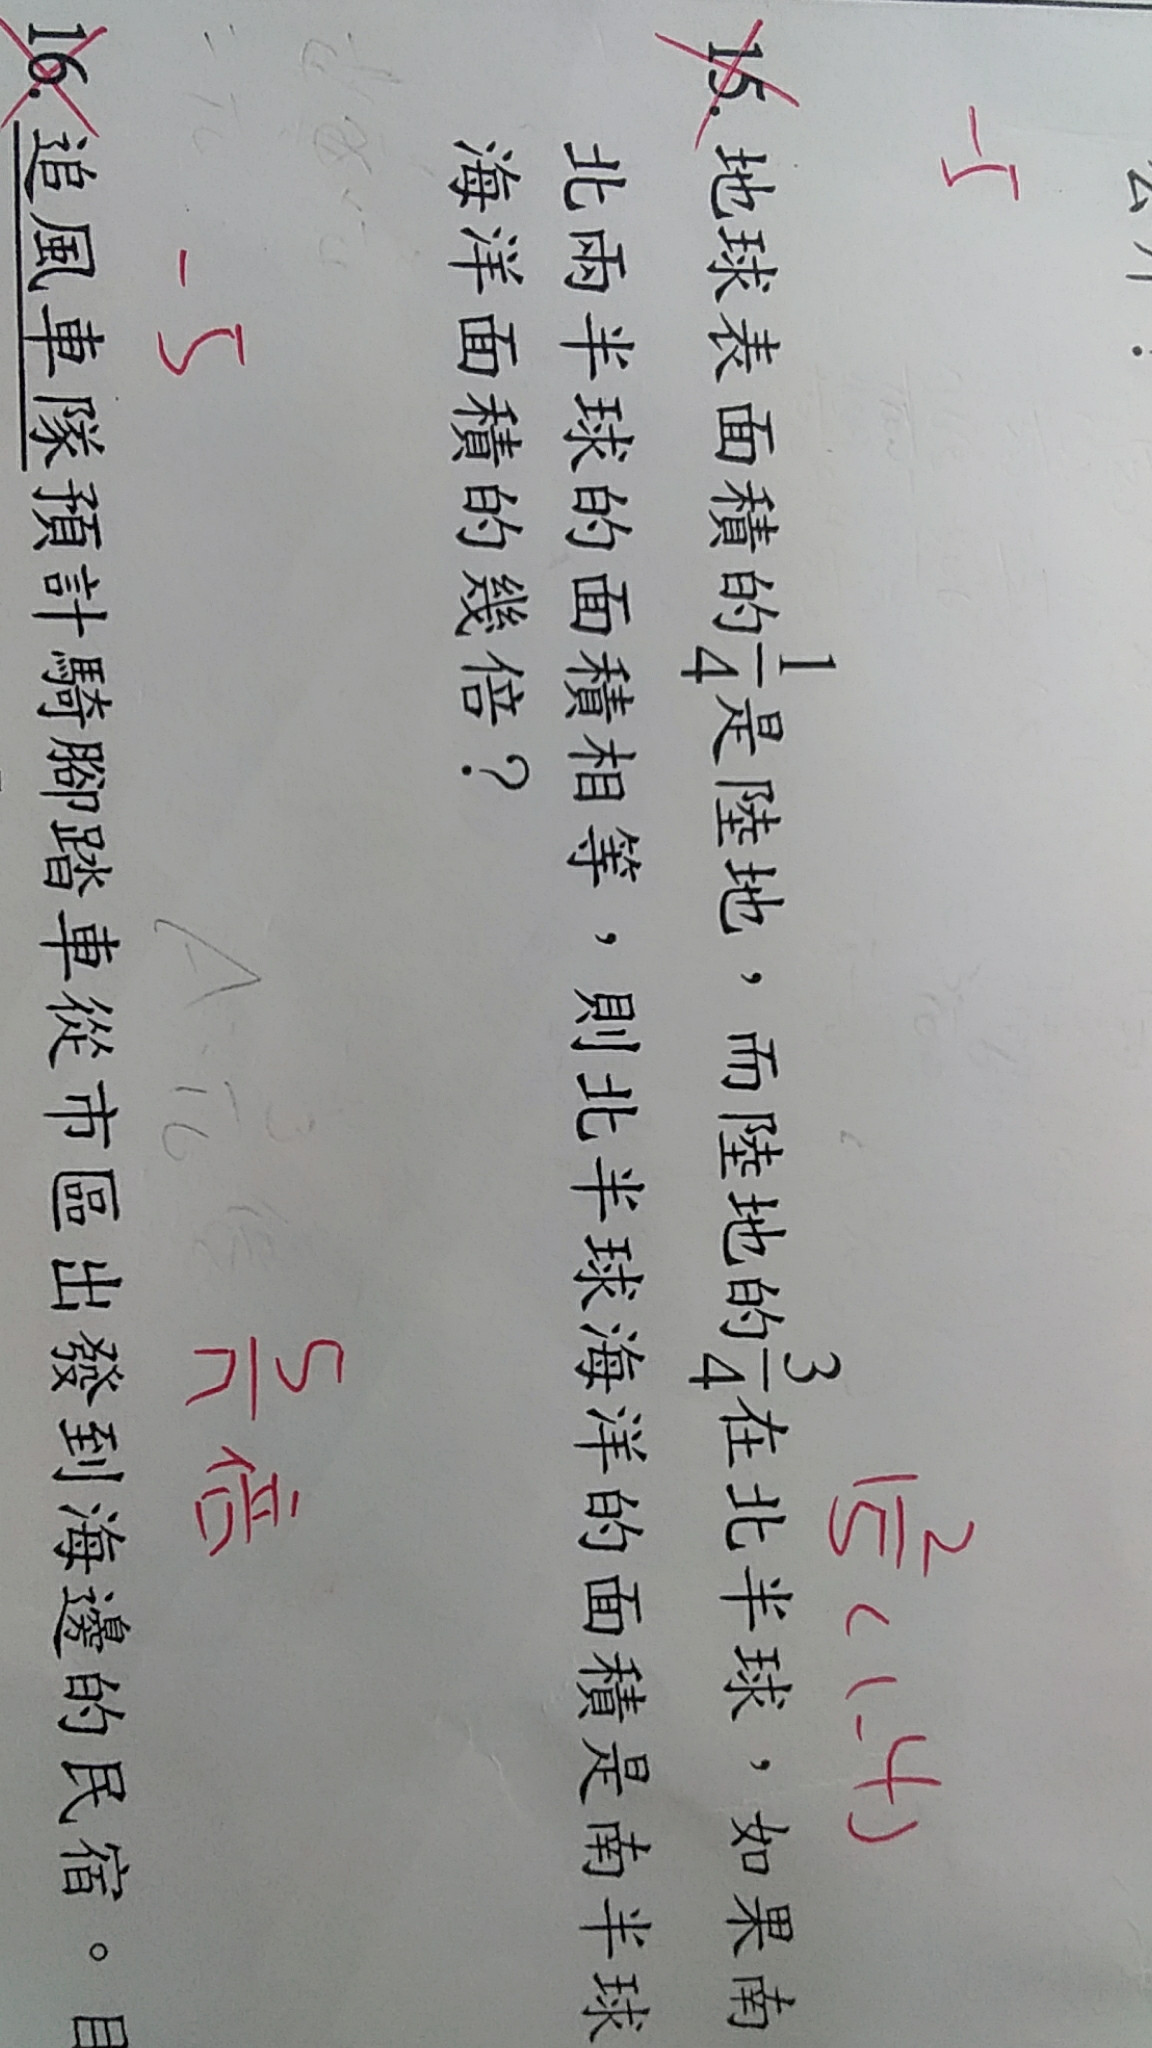 -5
1 2/5 < (1.4)
15. 地球表面積的1/4是陸地，而陸地的3/4在北半球，如果南
北兩半球的面積相等，則北半球海洋的面積是南半球
海洋面積的幾倍？
-5
5/7 倍
16. 追風車隊預計騎腳踏車從市區出發到海邊的民宿。目